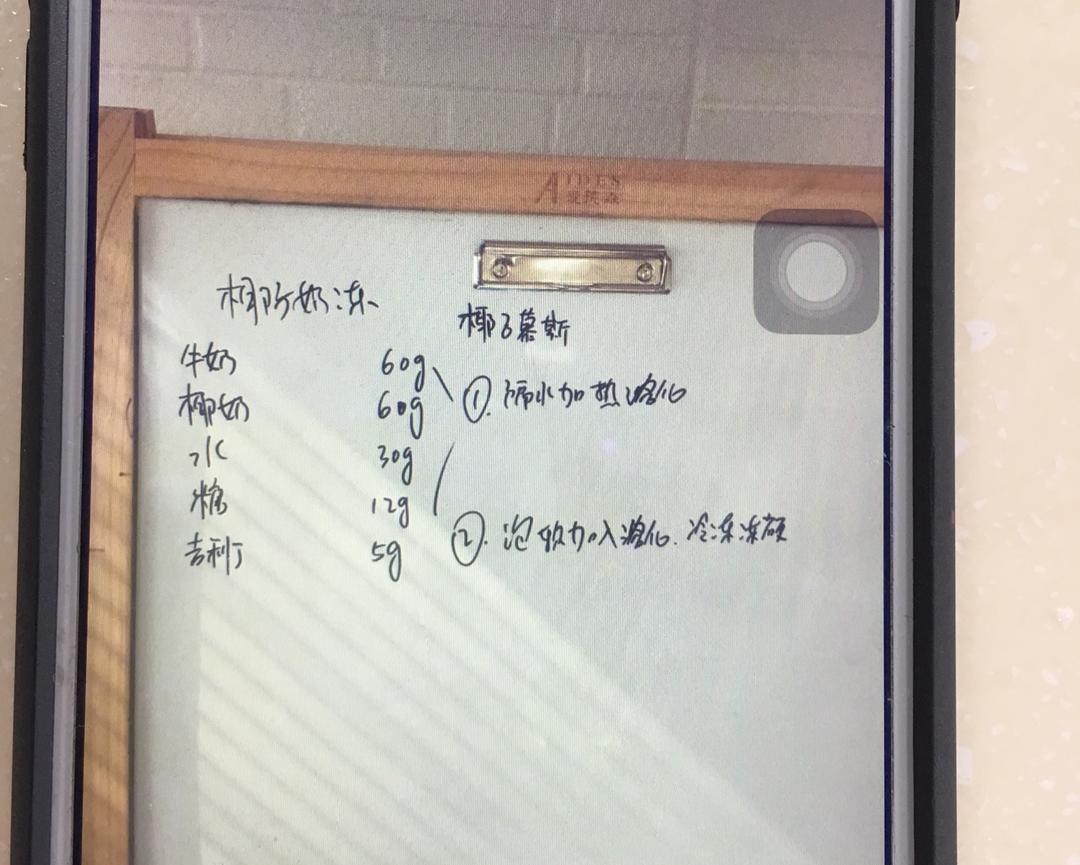 AIDES
爱揆森
椰奶奶冻
椰子慕斯
牛奶 60g
椰奶 60g
① 隔水加热溶化
水 30g
糖 12g
吉利丁 5g
② 泡软加入溶化. 冷冻冻硬